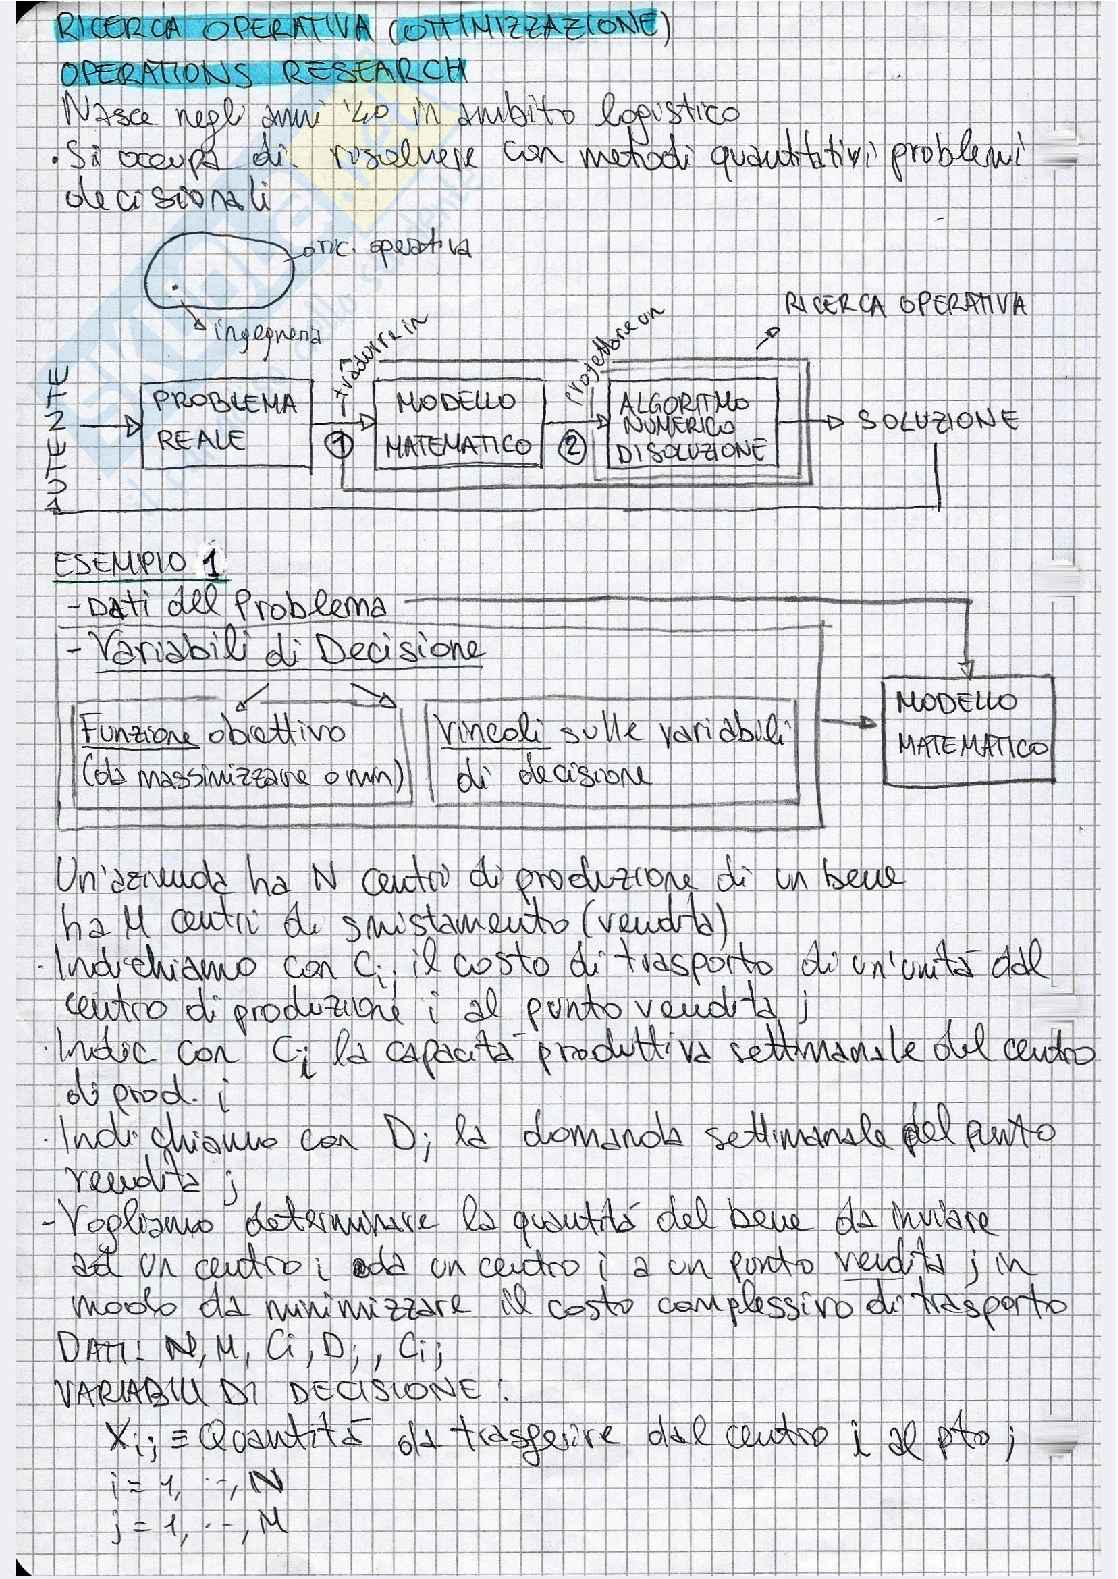 RICERCA OPERATIVA (OTTIMIZZAZIONE)
OPERATIONS RESEARCH
Nasce negli anni '40 in ambito logistico
• Si occupa di risolvere con metodi quantitativi problemi
decisionali
ric. operativa
ingegneria
RICERCA OPERATIVA
tradurre in
progettare un
UTENTE
PROBLEMA
REALE
1
MODELLO
MATEMATICO
2
ALGORITMO
NUMERICO
DI SOLUZIONE
SOLUZIONE
ESEMPIO 1
- DATI del Problema
- Variabili di Decisione
Funzione obiettivo
(da massimizzare o min)
Vincoli sulle variabili
di decisione
MODELLO
MATEMATICO
Un'azienda ha N centri di produzione di un bene
ha M centri di smistamento (vendita)
· Indichiamo con Cij il costo di trasporto di un'unità dal
centro di produzione i al punto vendita j
· Indic con Ci la capacità produttiva settimanale del centro
di prod. i
· Indichiamo con Dj la domanda settimanale del punto
vendita j
- Vogliamo determinare la quantità del bene da inviare
ad un centro i da un centro i a un punto vendita j in
modo da minimizzare il costo complessivo di trasporto
DATI: N, M, Ci, Dj, Cij
VARIABILI DI DECISIONE:
Xij ≡ Quantità da trasferire dal centro i al pto j
i = 1, .., N
j = 1, .., M